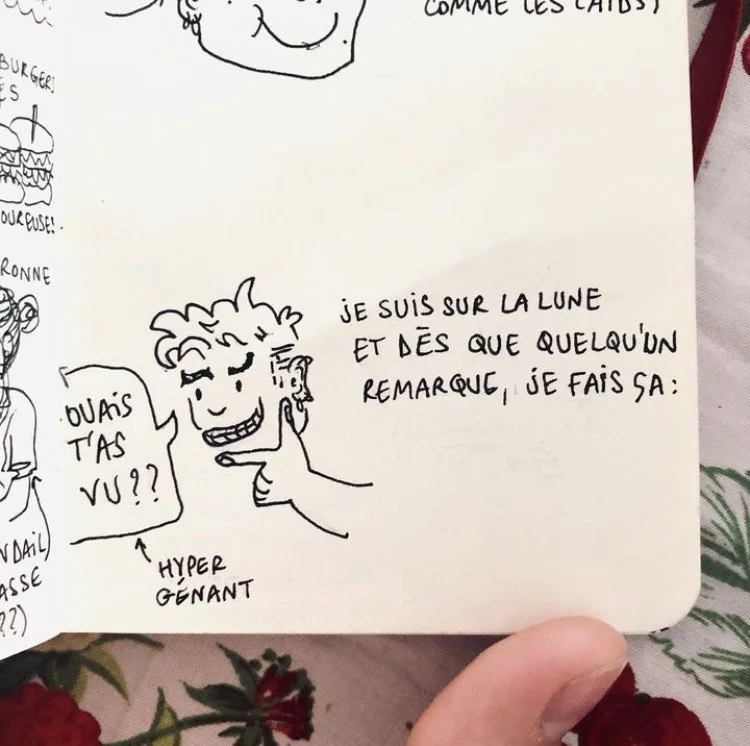 COMME LES LAIDS)
BURGERS
ES
OUREUSE!
RONNE
JE SUIS SUR LA LUNE
ET DÈS QUE QUELQU'UN
REMARQUE, JE FAIS ÇA:
OUAIS
T'AS
VU??
HYPER
GÉNANT
NDAIL
ASSE
??)